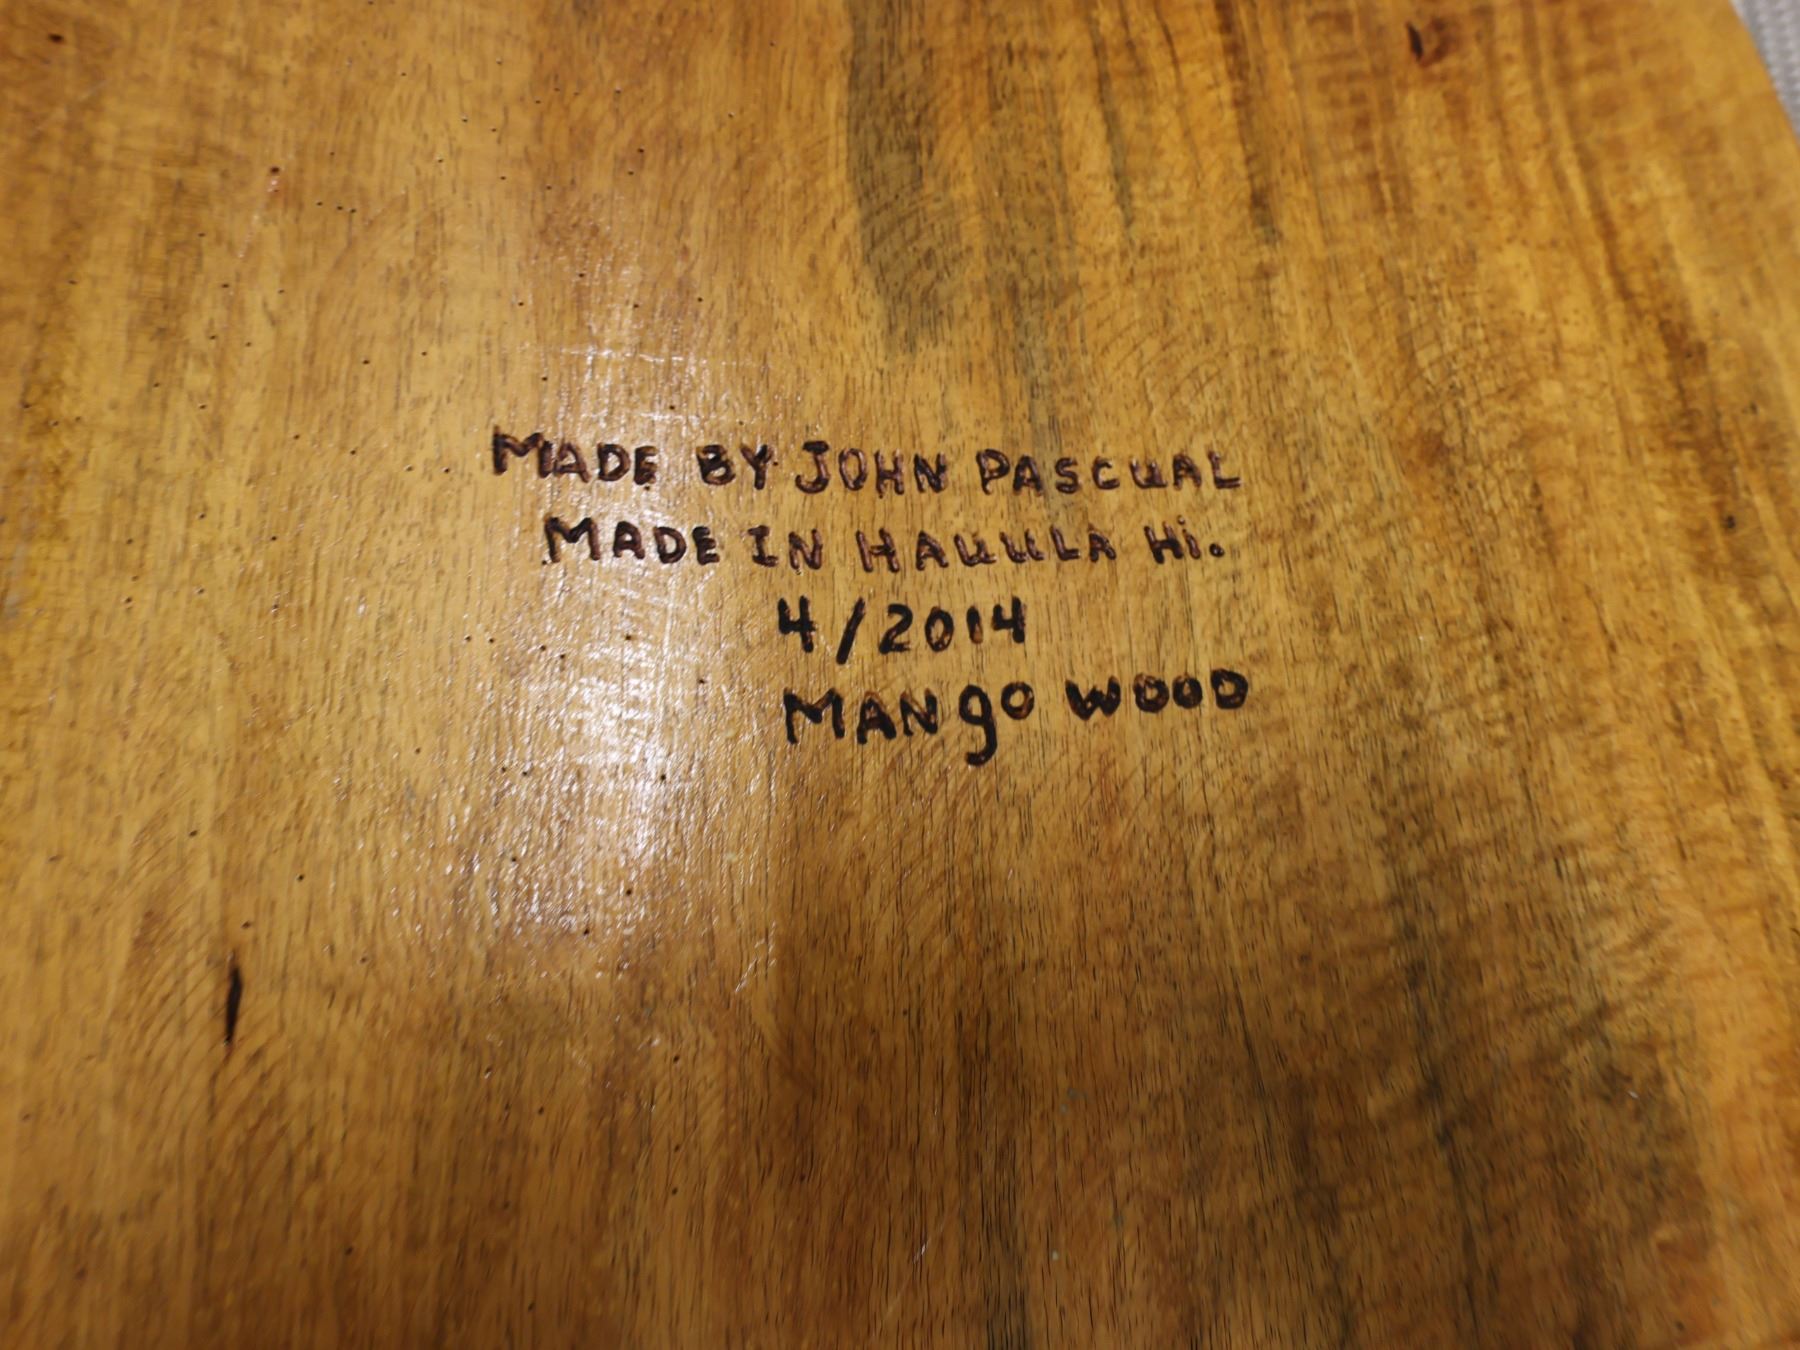 MADE BY JOHN PASCUAL
MADE IN HAUULA Hi.
4/2014
MANgO WOOD